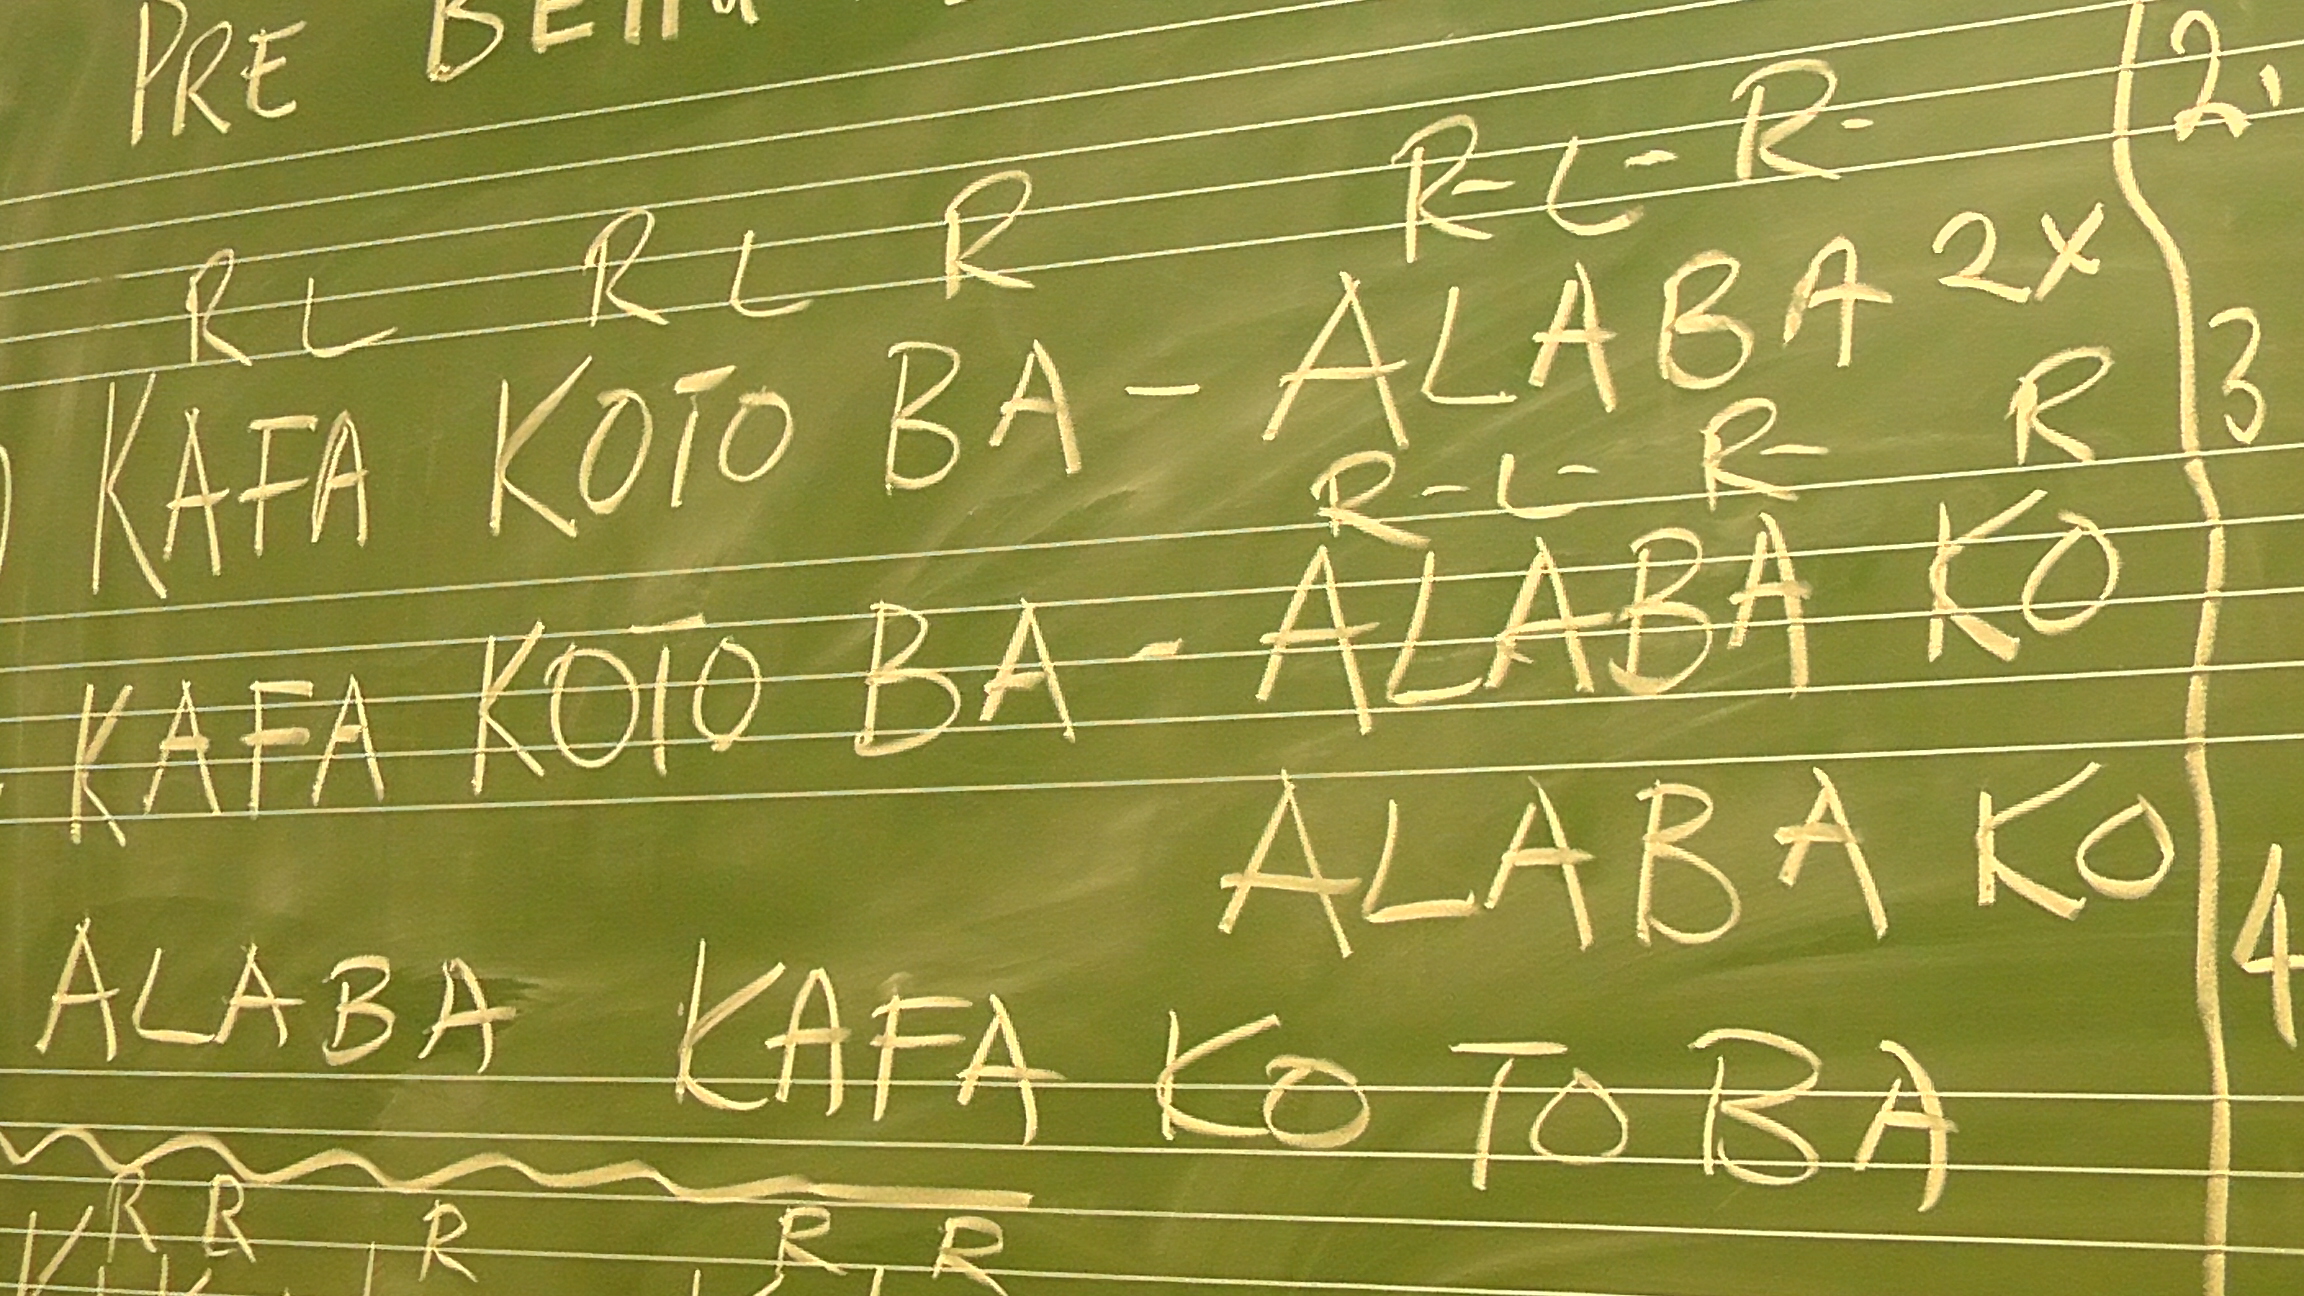 PRE
R L R L R R- L- R-
KAFA KOTO BA - ALABA 2X
R - L - R- R
KAFA KOTO BA - ALABA KO
ALABA KO
ALABA KAFA KO TO BA
R R R R R
2.
3
4